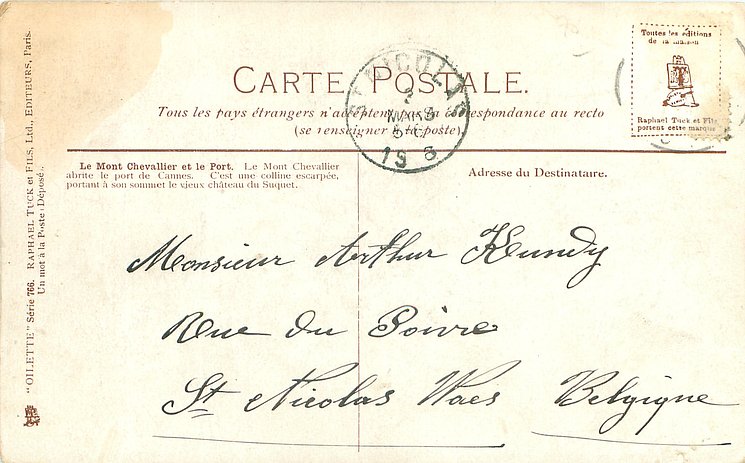 CARTE POSTALE.
Tous les pays étrangers n'acceptent pas la correspondance au recto
(se renseigner à la poste).
Toutes les éditions
de la maison
Raphael Tuck et Fils
portent cette marque
ST NICOLAS
MARS
19 8
Le Mont Chevallier et le Port. Le Mont Chevallier
abrite le port de Cannes. C'est une colline escarpée,
portant à son sommet le vieux château du Suquet.
Adresse du Destinataire.
Monsieur Arthur Kundy
Rue du Poivre
St Nicolas Waes Belgique
"OILETTE" Série 766. RAPHAEL TUCK et FILS, Ltd., EDITEURS, Paris.
Un mot à la Poste (Déposé).